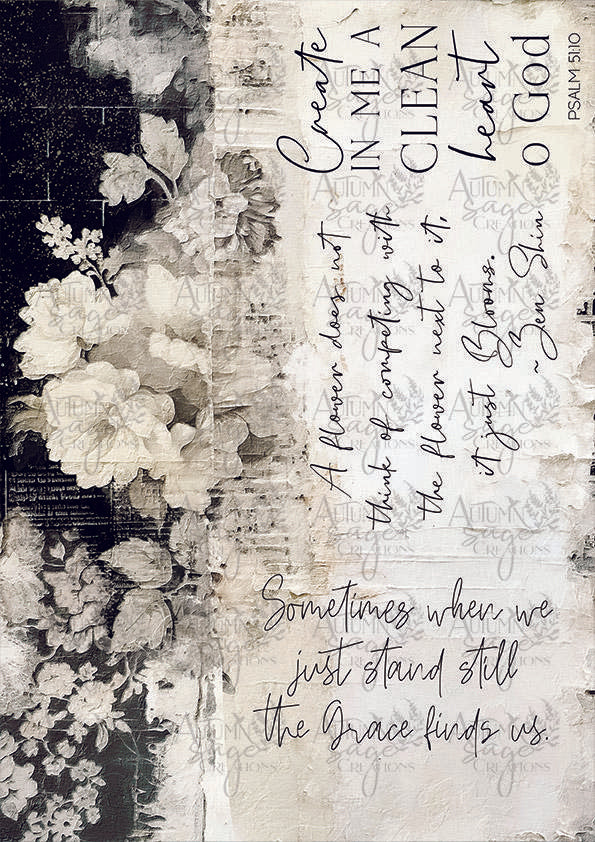 Create
IN ME A
CLEAN
heart
O God
PSALM 51:10
A flower does not
think of competing with
the flower next to it,
it just Blooms.
~Zen Shin
Sometimes when we
just stand still
the Grace finds us.
AUTUMN
Sage
CREATIONS